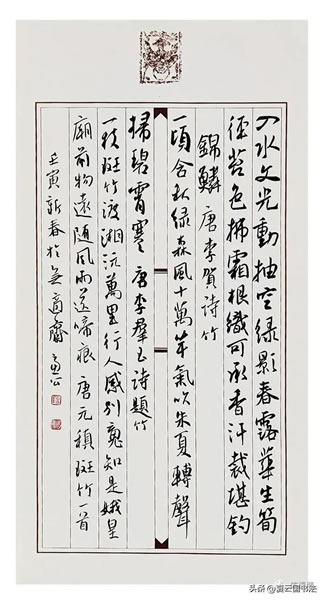 入水文光動抽空綠影春露華生筍
徑苔色拂霜根織可承香汗裁堪釣
錦鱗 唐李賀詩竹
一頃含秋綠森風十萬竿氣吹朱夏轉聲
掃碧霄寒 唐李羣玉詩題竹
一枝斑竹渡湘沅萬里行人感別魂知是娥皇
廟前物遠隨風雨送啼痕 唐元稹斑竹一首
壬寅新春於 齋 公
头条 书法